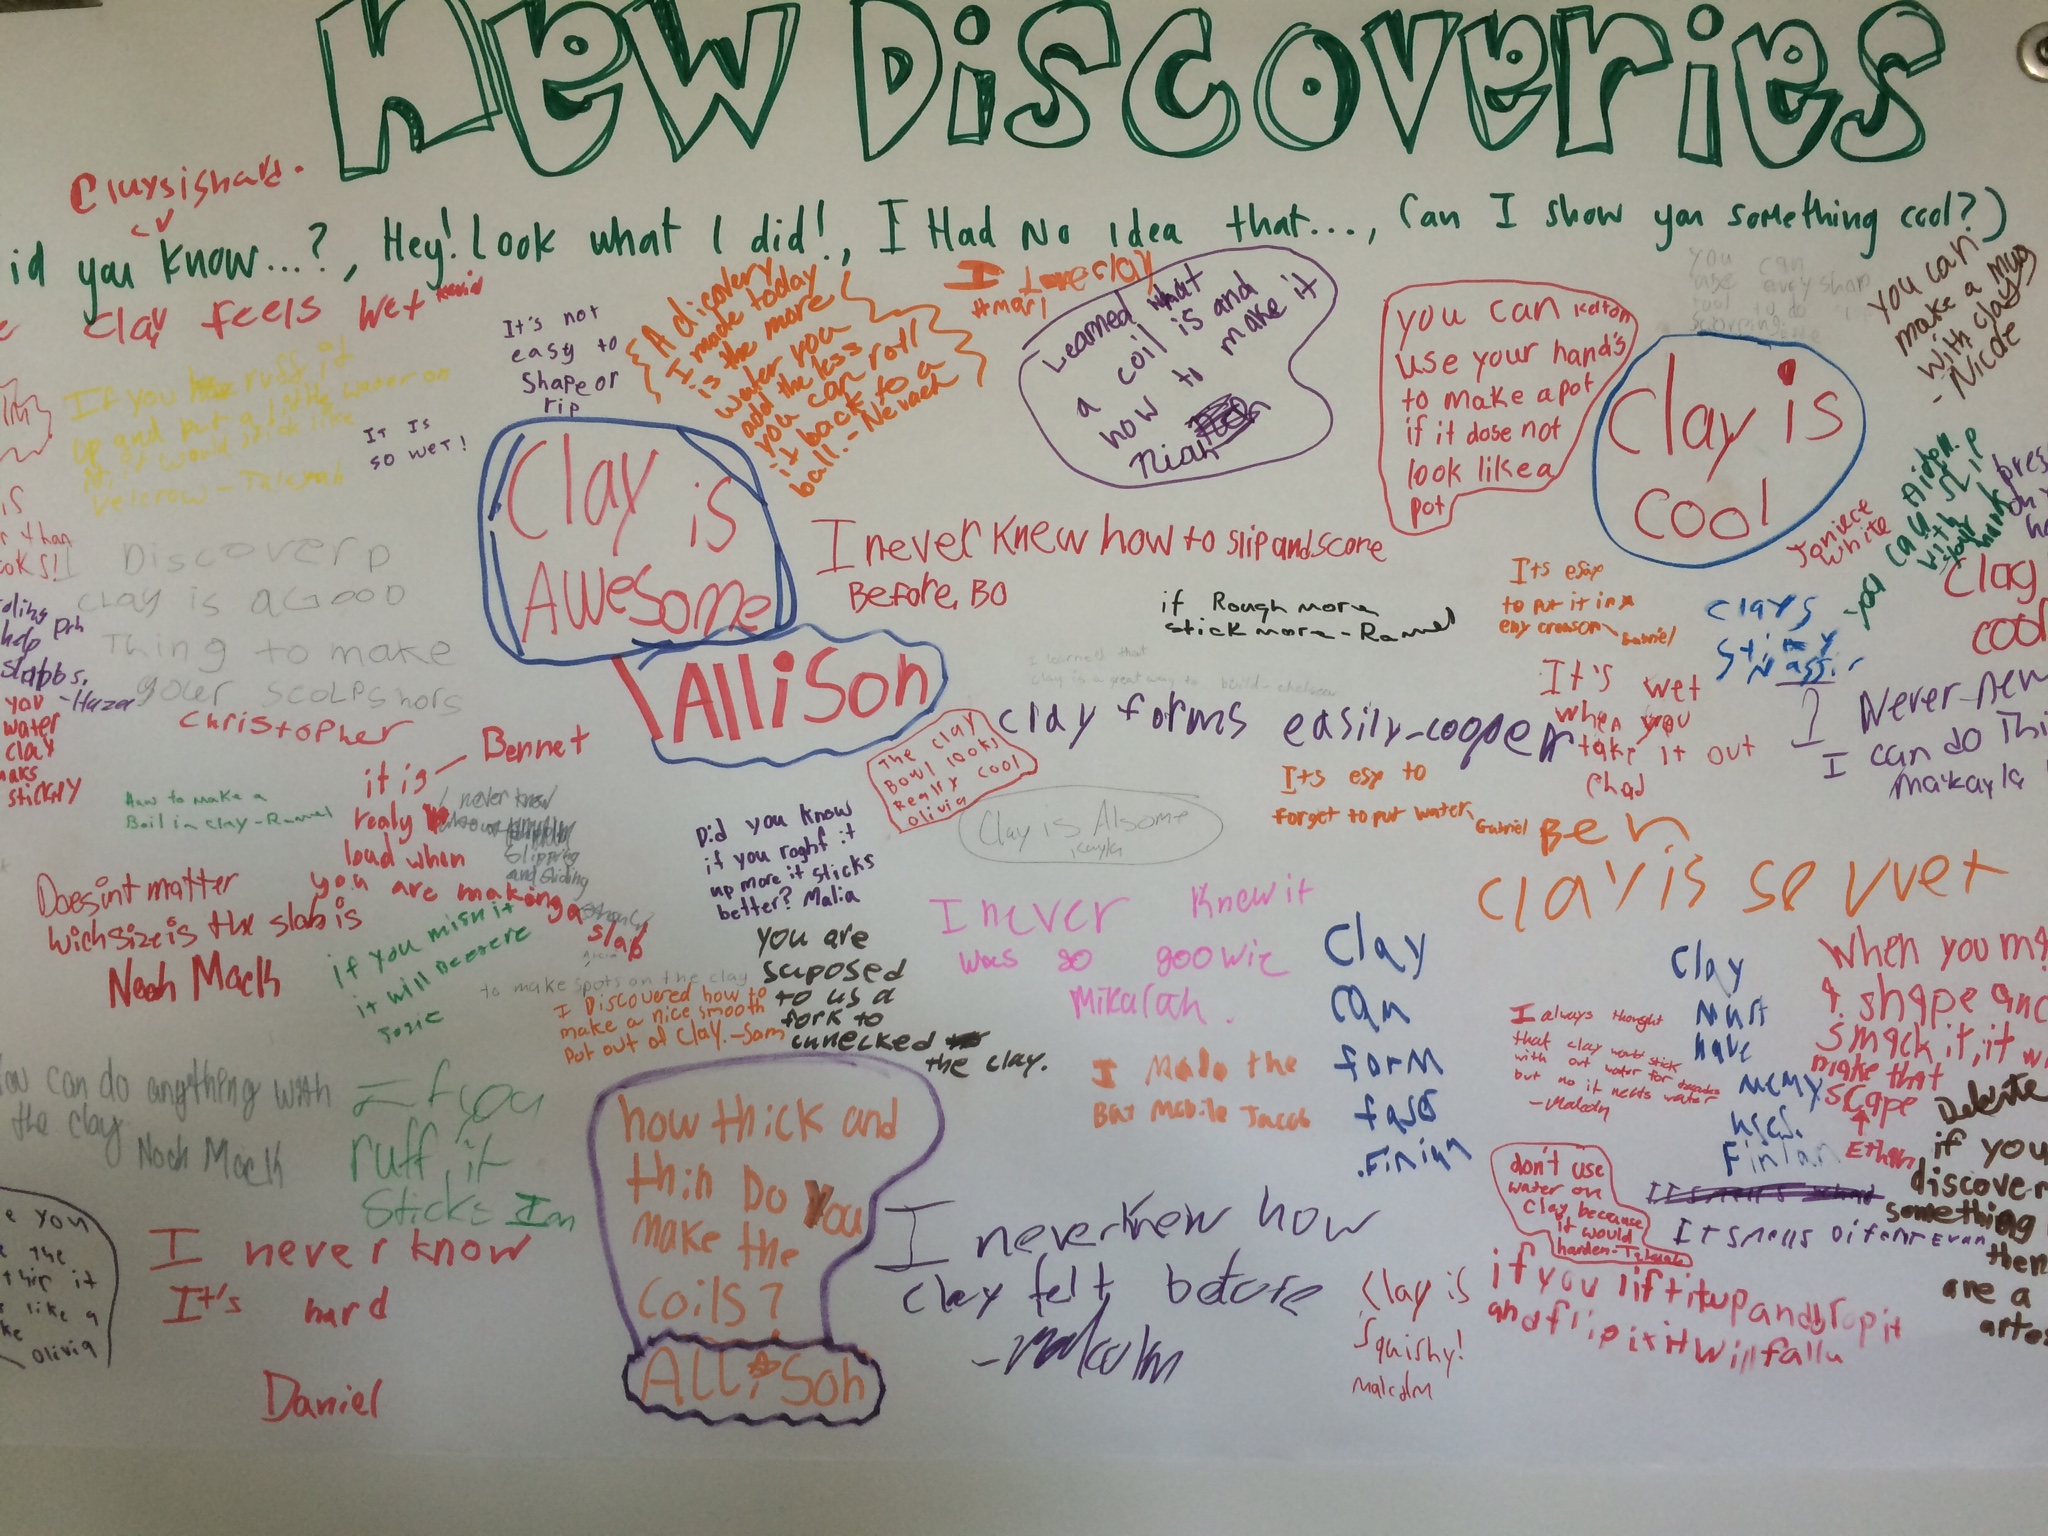 New Discoveries
Claysishard.
id you know...?, Hey! Look what I did!, I Had No idea that..., Can I show you something cool?)
Clay feels wet
It's not
easy to
shape or
rip
A discovery
I made today
is the more
water you
add the less
you can roll
it back to a
ball. - Nevaeh
I Love clay
#mari
Learned what
a coil is and
how to make it
Niah
you can Kelton
use your hand's
to make a pot
if it dose not
look like a
pot
Clay is
cool
You can
make a Mug
with clay
- Nicole
If you ruff it
up and put a little water on
it, it would stick like
velcrow -
It Is
so wet!
Clay is
Awesome
Allison
I never knew how to slip and score
Before, Bo
Janiece
White
Discover
clay is a Good
Thing to make
your scolpshors
Christopher
if Rough more
stick more-Rammel
Its esay
to put it in
eny creason Gabriel
Clays
Sticky
Nassir
Clay
cool
I learned that
clay is a great way to build - chelsea
clay forms easily-cooper
It's wet
when you
take it out
Chad
I Never new
I can do Thi
Makayla
slabbs.
-Hazel
you
water
clay
maks
stickly
Bennet
it is
realy
loud when
you are making a
slab
How to make a
Ball in clay-Rammel
I never knew
Slipping
and Sliding
The clay
Bowl looks
Really cool
Olivia
Clay is Alsome
Kayla
Its esy to
forget to put water, Gabriel
Ben
clay is so wet
Did you know
if you roght it
up more it sticks
better? Malia
Doesint matter
wich size is the slab is
Noah Mack
if you
it will
Josie
to make spots on the clay
I Discovered how to
make a nice smooth
Pot out of Clay.-Sam
you are
suposed
to us a
fork to
cunecked
the clay.
I never knew it
was so goowie
Mikalah.
Clay
can
form
fass
.Finian
Clay
must
have
meny
uses.
Finian
I always thought
that clay would stick
with out water for
but no it needs water
-Malcolm
When you m
a shape and
smack it, it wi
make that
scape
Ethan
You can do anything with
the clay
Noah Mack
If you
ruff it
Sticks Ian
I Made the
Bat Mobile Jacob
how thick and
thin Do You
make the
coils?
Allison
don't use
water on
clay because
it would
harden-
It smells Difent Evan
if you
discover
something
then
are a
I never know
It's hard
Daniel
I never knew how
clay felt before
-Malcolm
Clay is
Squishy!
Malcolm
if you lift it up and drop it
and flip it it will fall
e you
the
it
like a
Olivia